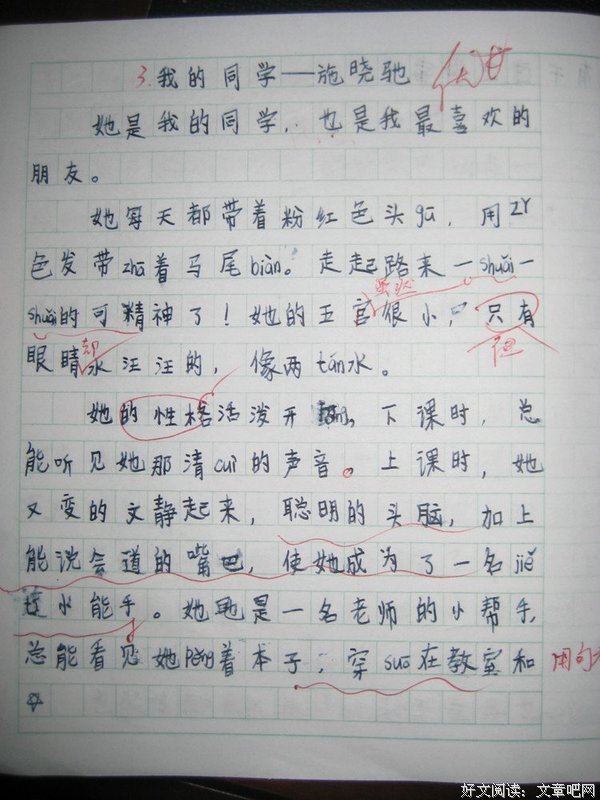 3.我的同学——施晓驰
优甘
她是我的同学,也是我最喜欢的
朋友。
她每天都带着粉红色头gū,用ZY
色发带zhā着马尾biàn。走起路来一shuǎi一
虽然
shuǎi的可精神了!她的五官很小,只有
却 但
眼睛水汪汪的,像两tán水。
她的性格活泼开lǎng,下课时,总
能听见她那清cuì的声音。上课时,她
又变的文静起来,聪明的头脑,加上
能说会道的嘴巴,使她成为了一名jiě
过小能手。她也是一名老师的小帮手,
总能看见她pěng着本子,穿suō在教室和
用句
好文阅读:文章吧网